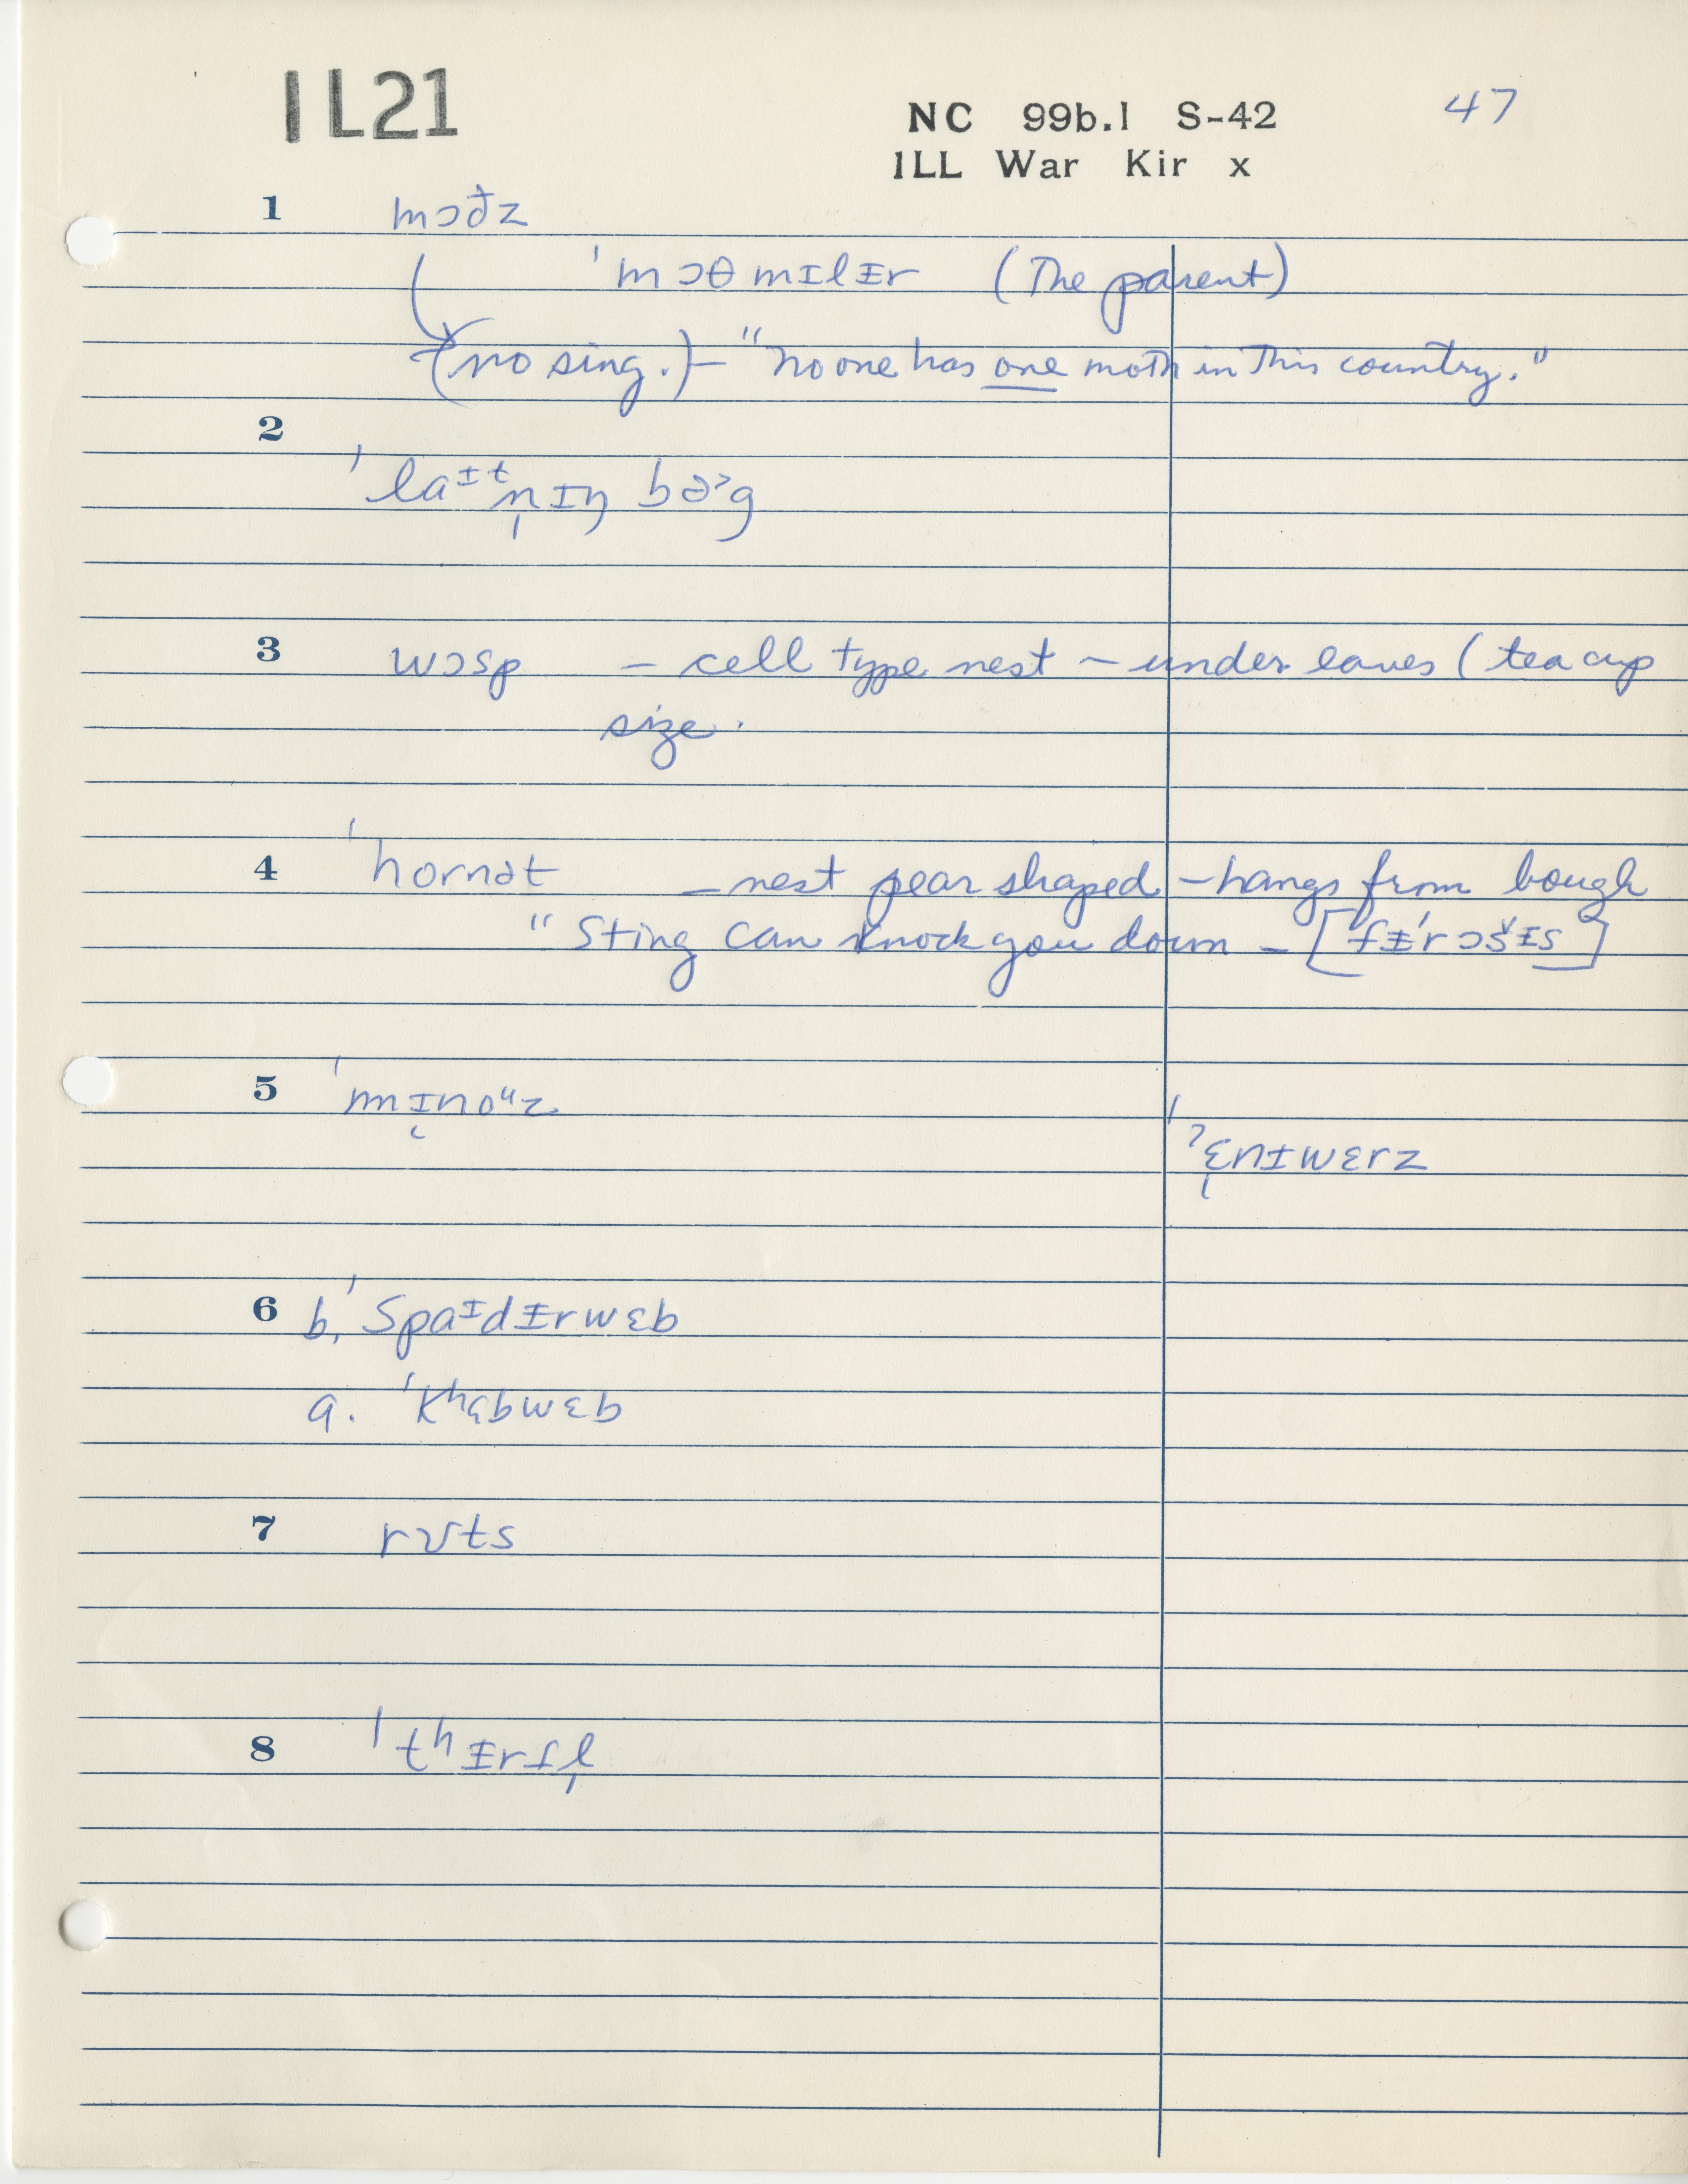 IL21
NC 99b.1 S-42 47
ILL War Kir x
1 mɔðz
ˈmɔθmɪlᵻr (The parent)
(no sing.) – "no one has one moth in this country."
2
ˈlaᶦᵗn̩ɪŋ bə˃g
3 wɔsp – cell type nest – under eaves (tea cup
size.
4 ˈhornət – nest pear shaped – hangs from bough
"Sting can knock you down – [fᵻˈrɔšᵻs]
5 ˈmɪnoᵘz
ˈˀɛnɪwɛrz
6 b. ˈspaᶦdᵻrwɛb
a. ˈkʰɛbwɛb
7 rʊts
8 ˈtʰᵻrsl̩